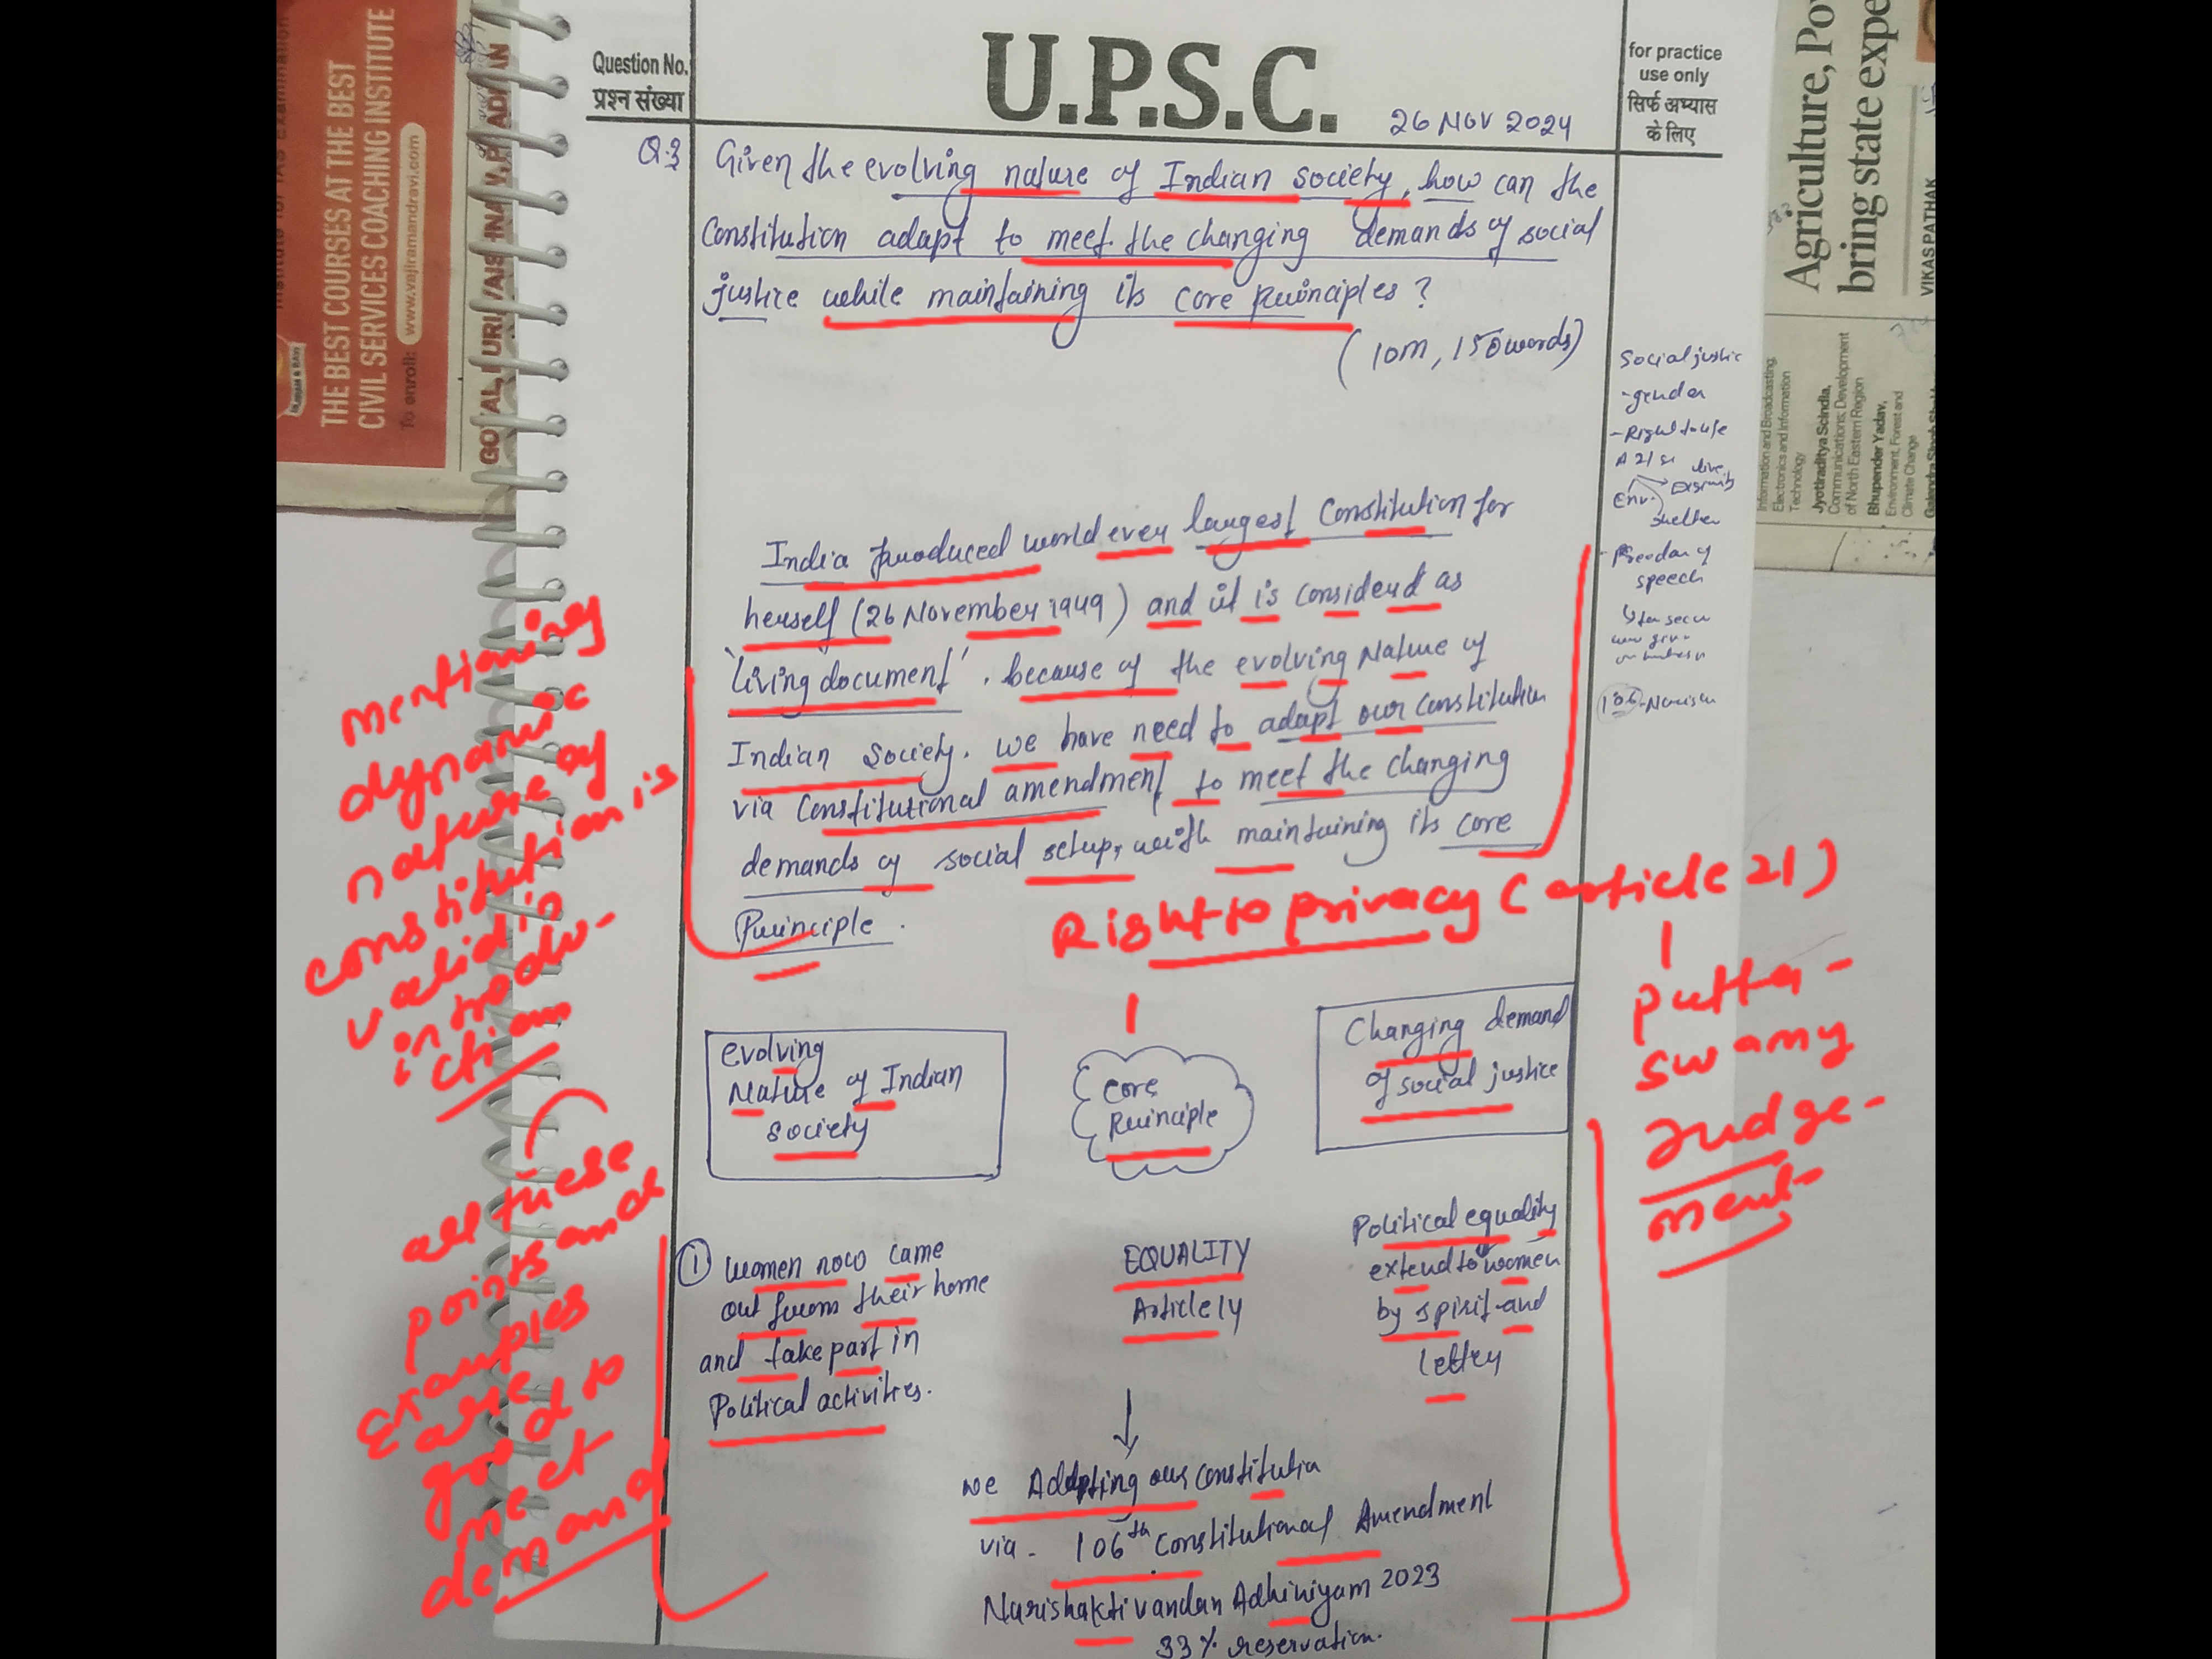 THE BEST COURSES AT THE BEST
CIVIL SERVICES COACHING INSTITUTE
To enroll: www.vajiramandravi.com
Question No.
प्रश्न संख्या
U.P.S.C.
for practice
use only
सिर्फ अभ्यास
के लिए
26 NOV 2024
Q.3 Given the evolving nature of Indian society, how can the
Constitution adapt to meet the changing demands of social
justice while maintaining its core Principles?
(10m, 150words)
Social justic
- gender
- Right to life
A 21
Env.
shelter
- Freedom of
speech
106
India produced world ever largest Constitution for
herself (26 November 1949) and it is considerd as
'living document'. because of the evolving Nature of
Indian Society. we have need to adapt our constitution
via Constitutional amendment to meet the changing
demands of social setup, with maintaining its core
Principle.
mentioning
dynamic
nature of
constitution is
valid in
introdu-
ction
Right to privacy (article 21)
putta-
swamy
Judge-
ment
evolving
Nature of Indian
society
Core
Principle
Changing demand
of social justice
all these
points and
Examples
are
good to
meet
demand
① women now came
out from their home
and take part in
Political activities.
EQUALITY
Article 14
Political equality
extend to women
by spirit and
letter
we Adapting our constitution
via - 106th Constitutional Amendment
Narishakti vandan Adhiniyam 2023
33% reservation.
Agriculture, Po
bring state expe
VIKAS PATHAK
Information and Broadcasting;
Electronics and Information
Technology
Jyotiraditya Scindia,
Communications; Development
of North Eastern Region
Bhupender Yadav,
Environment, Forest and
Climate Change